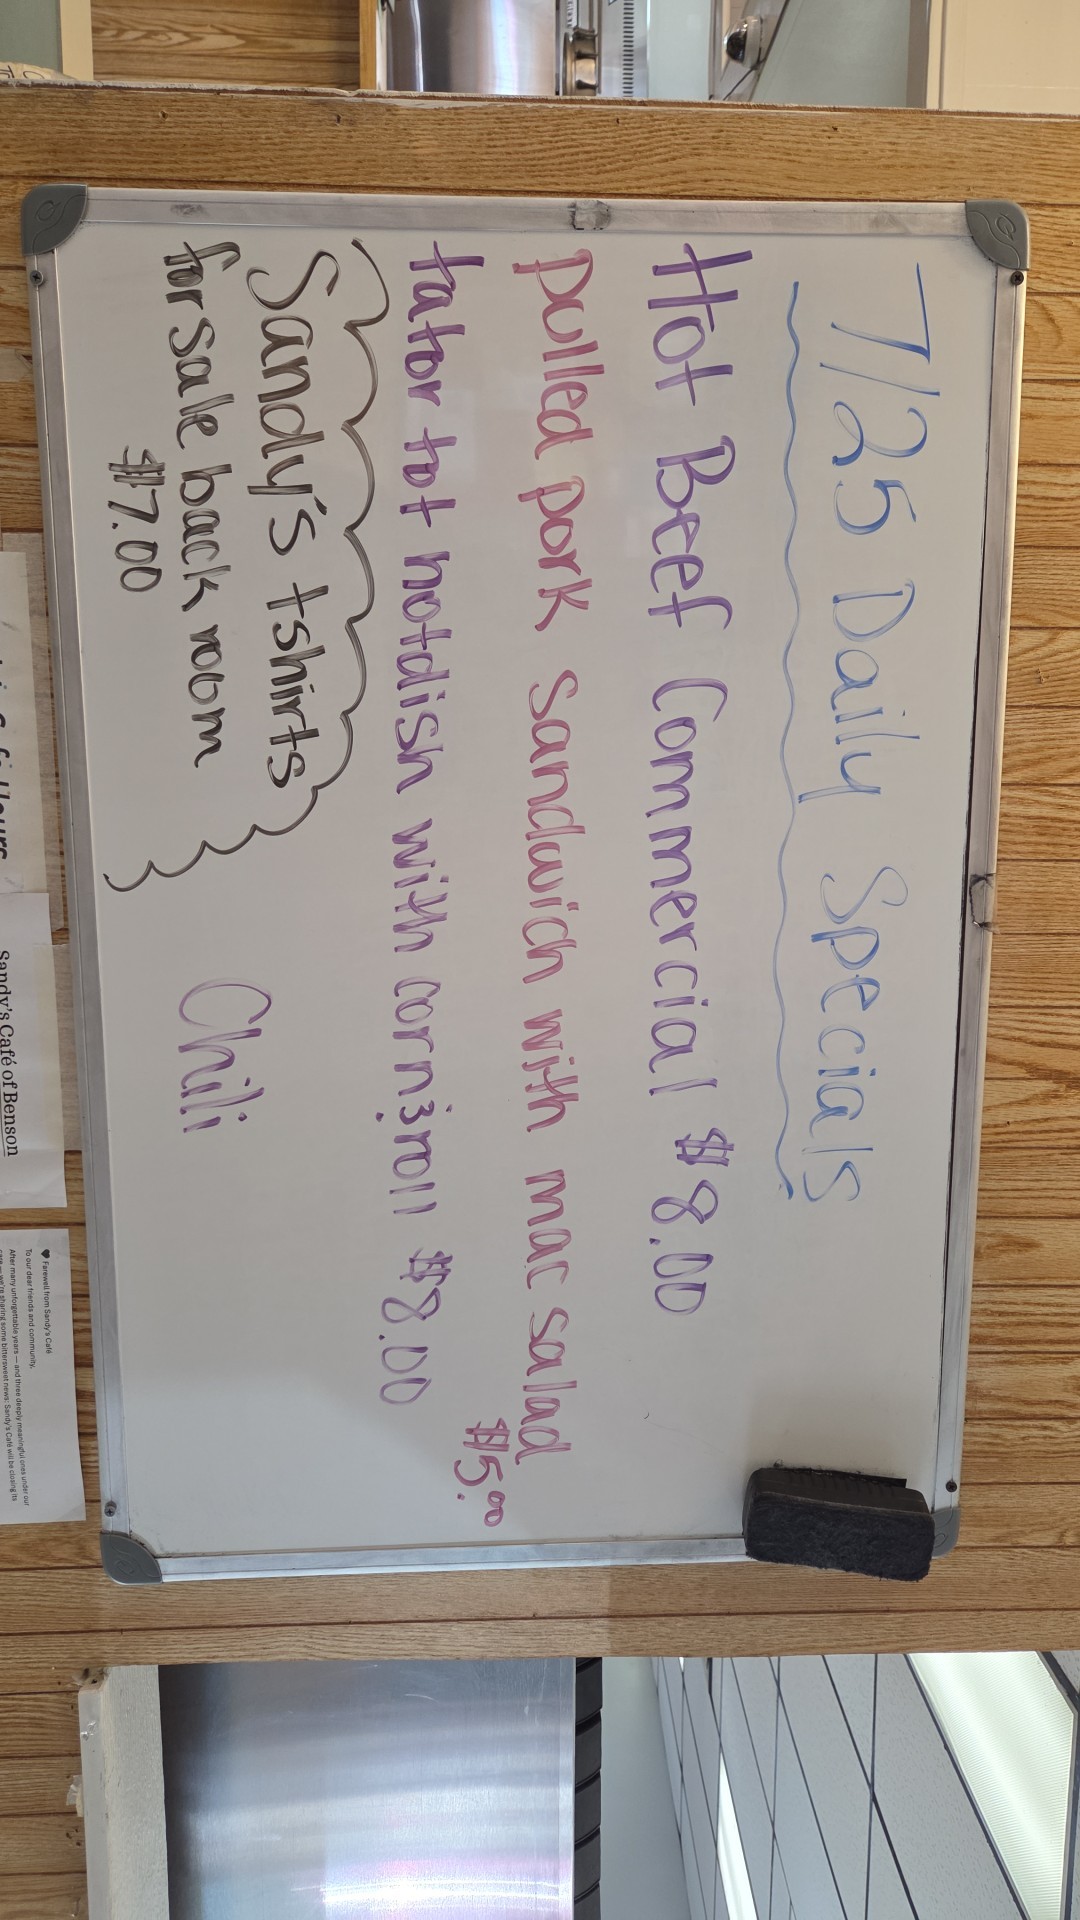 7/25 Daily Specials
Hot Beef Commercial $8.00
pulled pork sandwich with mac salad
$5.00
tator tot hotdish with corn & roll $8.00
Sandy's tshirts
for sale back room
$7.00
Chili
Sandy's Café of Benson
♥ Farewell from Sandy's Café
To our dear friends and community,
After many unforgettable years — and three deeply meaningful ones under our
care — we're sharing some bittersweet news: Sandy's Café will be closing its